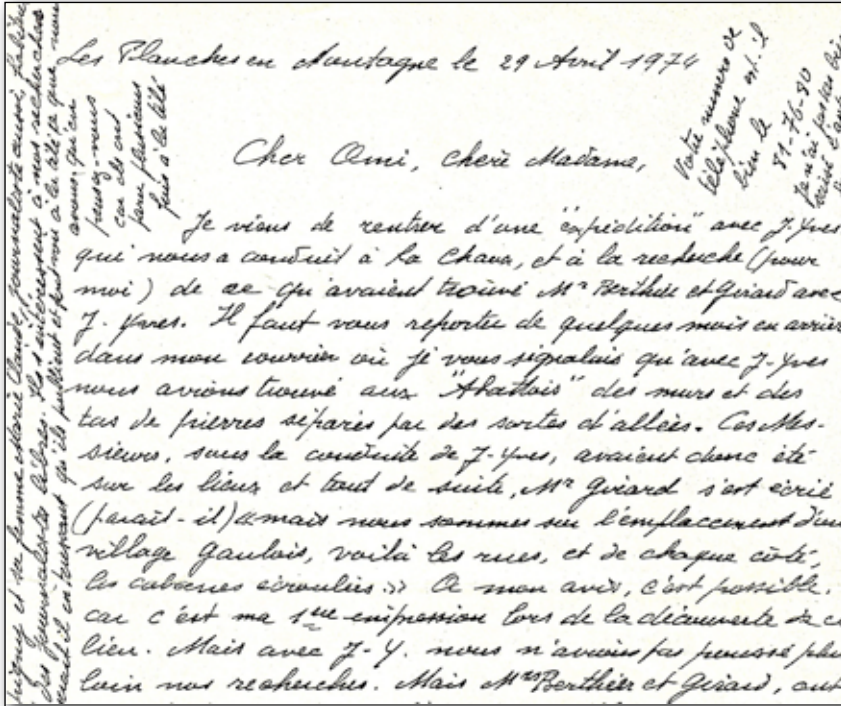 Les Planches en Montagne le 29 Avril 1974
Cher Ami, chere Madame,
Je viens de rentrer d'une "expédition" avec J. Yves
qui nous a conduit à la Chaux, et à la recherche (pour
moi) de ce qu'avaient trouvé Mr Berthier et Girard avec
J. Yves. Il faut vous reporter de quelques mois en arrièr
dans mon courrier où je vous signalais qu'avec J-Yves
nous avions trouvé aux "Abattois" des murs et des
tas de pierres séparés par des sortes d'allées. Ces Mes-
sieurs, sous la conduite de J-Yves, avaient donc été
sur les lieux et tout de suite, Mr Girard s'est écrié
(parait-il) « mais nous sommes sur l'emplacement d'un
village Gaulois, voilà les rues, et de chaque côté,
les cabanes écroulées » A mon avis, c'est possible.
car c'est ma 1ere impression lors de la découverte de ce
lieu. Mais avec J-Y. nous n'avions pas poussé plu
loin nos recherches. Mais Mrs Berthier et Girard, ont
Votre numero de
téléphone est-il
bien le
81-76-90
je n'ai pas
et sa femme Marie Claude, journaliste aussi,
des journalistes libres. Ils s'intéressent à nos recherches
qu'ils publient et à la télé que nous
avons, qu'en
pensez-vous
car ils ont
paru plusieurs
fois à la télé